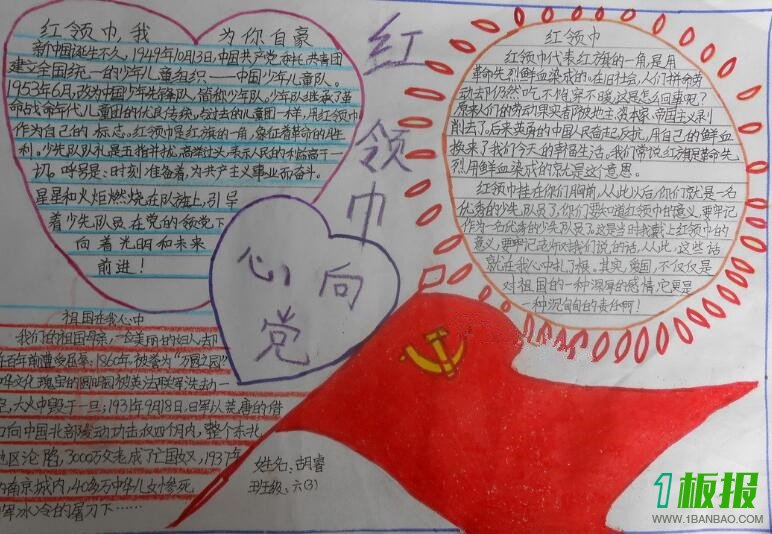 红领巾,我 为你自豪
新中国诞生不久,1949年10月13日,中国共产党委托共青团
建立全国统一的少年儿童组织——中国少年儿童队。
1953年6月,改为中国少年先锋队,简称少年队。少年队继承了革
命战争年代儿童团的优良传统,与过去的儿童团一样,用红领巾
作为自己的标志。红领巾是红旗的一角,象征着革命的胜
利。少先队队礼是五指并拢,高举过头,表示人民的利益高于一
切。呼号是:时刻准备着,为共产主义事业而奋斗。
星星和火炬燃烧在队旗上,引导
着少先队员在党的领党下
向着光明和未来
前进!
红领巾
心向党
红领巾
红领巾代表红旗的一角,是用
革命先烈鲜血染成的。在旧社会,人们拼命劳
动去却仍然吃不饱穿不暖,这是怎么回事呢?
原来人们的劳动果实都被地主、资本家、帝国主义剥
削去了。后来英勇的中国人民奋起反抗,用自己的鲜血
换来了我们今天的幸福生活。我们常说红旗是革命先
烈用鲜血染成的就是这个意思。
红领巾挂在你们胸前,从此以后,你们就是一名
优秀的少先队员了,你们要知道红领巾的意义,要牢记
作为一名优秀的少先队员了。这是当时我戴上红领巾的
意义,要牢记老师对我们说的话,从此,这些话
就在我心中扎了根。其实,爱国,不仅仅是
对祖国的一种深厚的感情,它更是
一种沉甸甸的责任啊!
祖国在我心中
我们的祖国母亲,一位美丽的妇人,却
在百年前遭受屈辱:1860年,被誉为"万园之园"
文化瑰宝的圆明园被英法联军洗劫一
空,大火中毁于一旦;1931年9月18日,日军以荒唐的借
口向中国北部发动功击,仅四个月内,整个东北
地区沦陷,3000万父老成了亡国奴,1937年
的南京城内,40多万中华儿女惨死
军冰冷的屠刀下……
姓名:胡睿
班级:六(3)
1板报
WWW.1BANBAO.COM